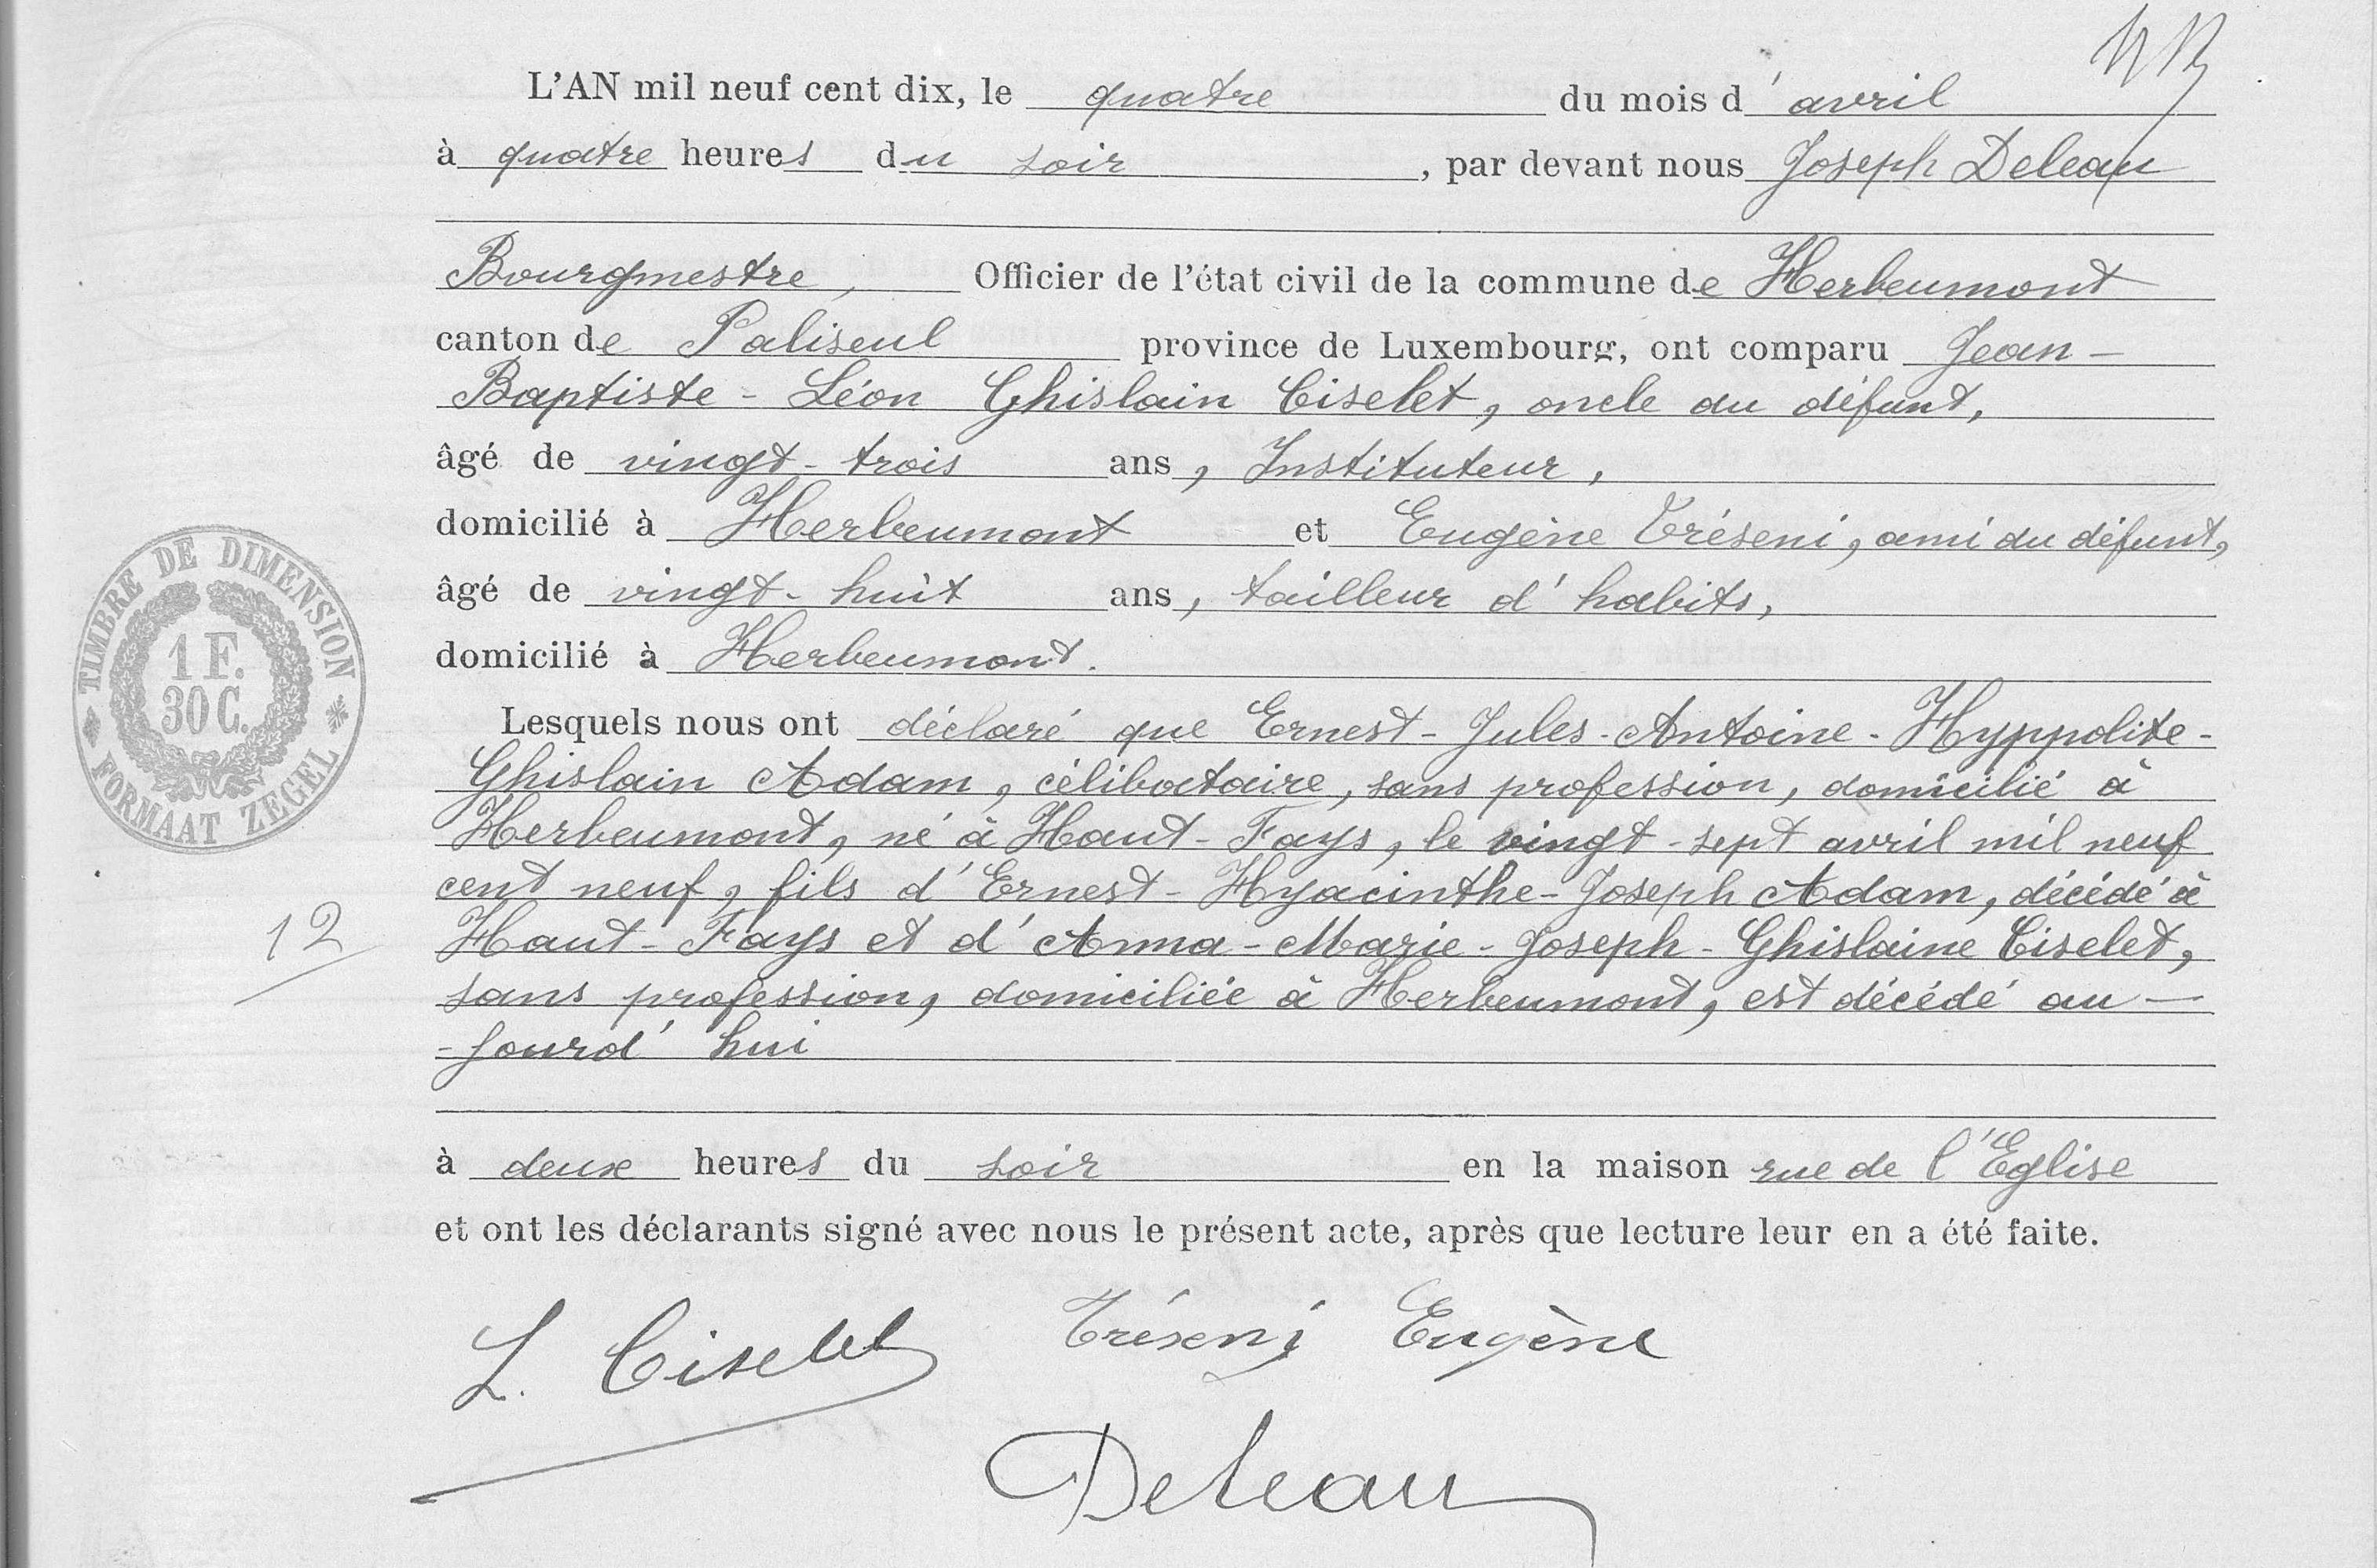 L'AN mil neuf cent dix, le quatre du mois d'avril
à quatre heures du soir, par devant nous Joseph Deleau
Bourgmestre, Officier de l'état civil de la commune de Herbeumont
canton de Paliseul province de Luxembourg, ont comparu Jean-
Baptiste-Léon Ghislain Ciselet, oncle du défunt,
âgé de vingt-trois ans, Instituteur,
domicilié à Herbeumont et Eugène Tréseni, ami du défunt,
âgé de vingt-huit ans, tailleur d'habits,
domicilié à Herbeumont.
TIMBRE DE DIMENSION
1 F.
30 C.
FORMAAT ZEGEL
Lesquels nous ont déclaré que Ernest-Jules-Antoine-Hyppolite-
Ghislain Adam, célibataire, sans profession, domicilié à
Herbeumont, né à Haut-Fays, le vingt-sept avril mil neuf
cent neuf, fils d'Ernest-Hyacinthe-Joseph Adam, décédé à
12
Haut-Fays et d'Anna-Marie-Joseph-Ghislaine Ciselet,
sans profession, domiciliée à Herbeumont, est décédé au-
-jourd'hui
à deux heures du soir en la maison rue de l'Eglise
et ont les déclarants signé avec nous le présent acte, après que lecture leur en a été faite.
L. Ciselet Tréseni Eugène
Deleau